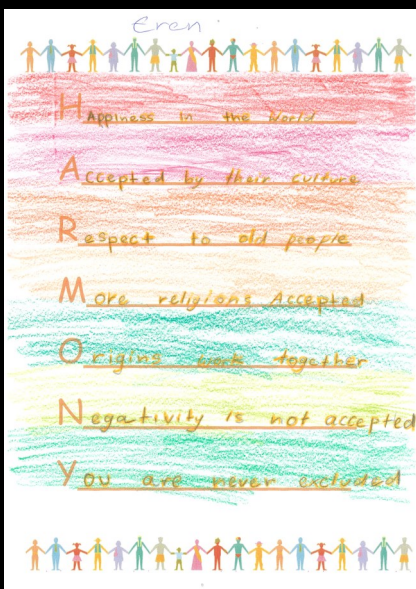 Eren
Happiness in the world
Accepted by their culture
Respect to old people
More religions Accepted
Origins work together
Negativity is not accepted
You are never excluded